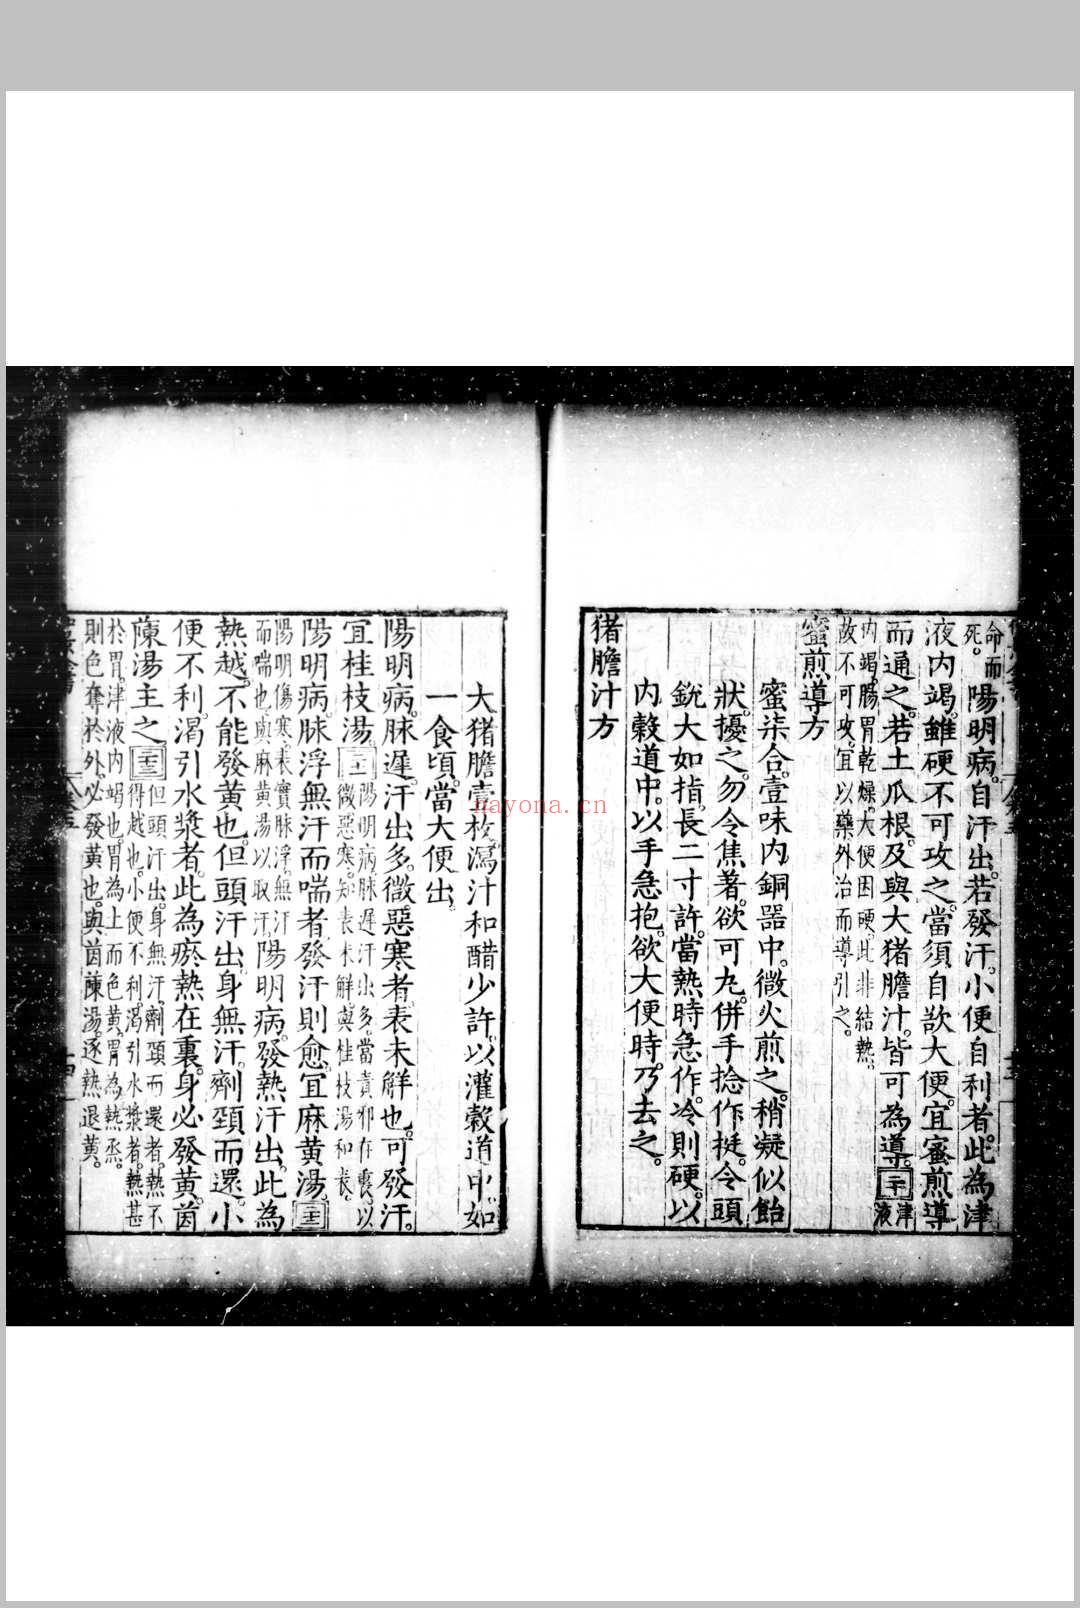 命而
死。
陽明病。自汗出。若發汗。小便自利者。此為津
液內竭。雖硬不可攻之。當須自欲大便。宜蜜煎導
而通之。若土瓜根。及與大猪膽汁。皆可為導。二十
津
液
內竭。腸胃乾燥。大便因硬。此非結熱。
故不可攻。宜以藥外治而導引之。
蜜煎導方
蜜柒合。壹味內銅器中。微火煎之。稍凝似飴
狀。擾之。勿令焦著。欲可丸。併手捻作挺。令頭
銳。大如指。長二寸許。當熱時急作。冷則硬。以
內穀道中。以手急抱。欲大便時。乃去之。
猪膽汁方
大猪膽壹枚。瀉汁。和醋少許。以灌穀道中。如
一食頃。當大便出。
陽明病。脉遲。汗出多。微惡寒者。表未解也。可發汗。
宜桂枝湯。二十一
陽明病。脉遲汗出多。當責邪在裏。以
微惡寒。知表未解。與桂枝湯和表。
陽明病。脉浮。無汗而喘者。發汗則愈。宜麻黃湯。二十二
陽明傷寒。表實脉浮。無汗
而喘也。與麻黃湯以取汗。
陽明病。發熱汗出。此為
熱越。不能發黃也。但頭汗出。身無汗。劑頸而還。小
便不利。渴引水漿者。此為瘀熱在裏。身必發黃。茵
蔯湯主之。二十三
但頭汗出。身無汗。劑頸而還者。熱不
得越也。小便不利。渴引水漿者。熱甚
於胃。津液內竭也。胃為土而色黃。胃為熱烝。
則色奪於外。必發黃也。與茵蔯湯。逐熱退黃。
nayona.cn